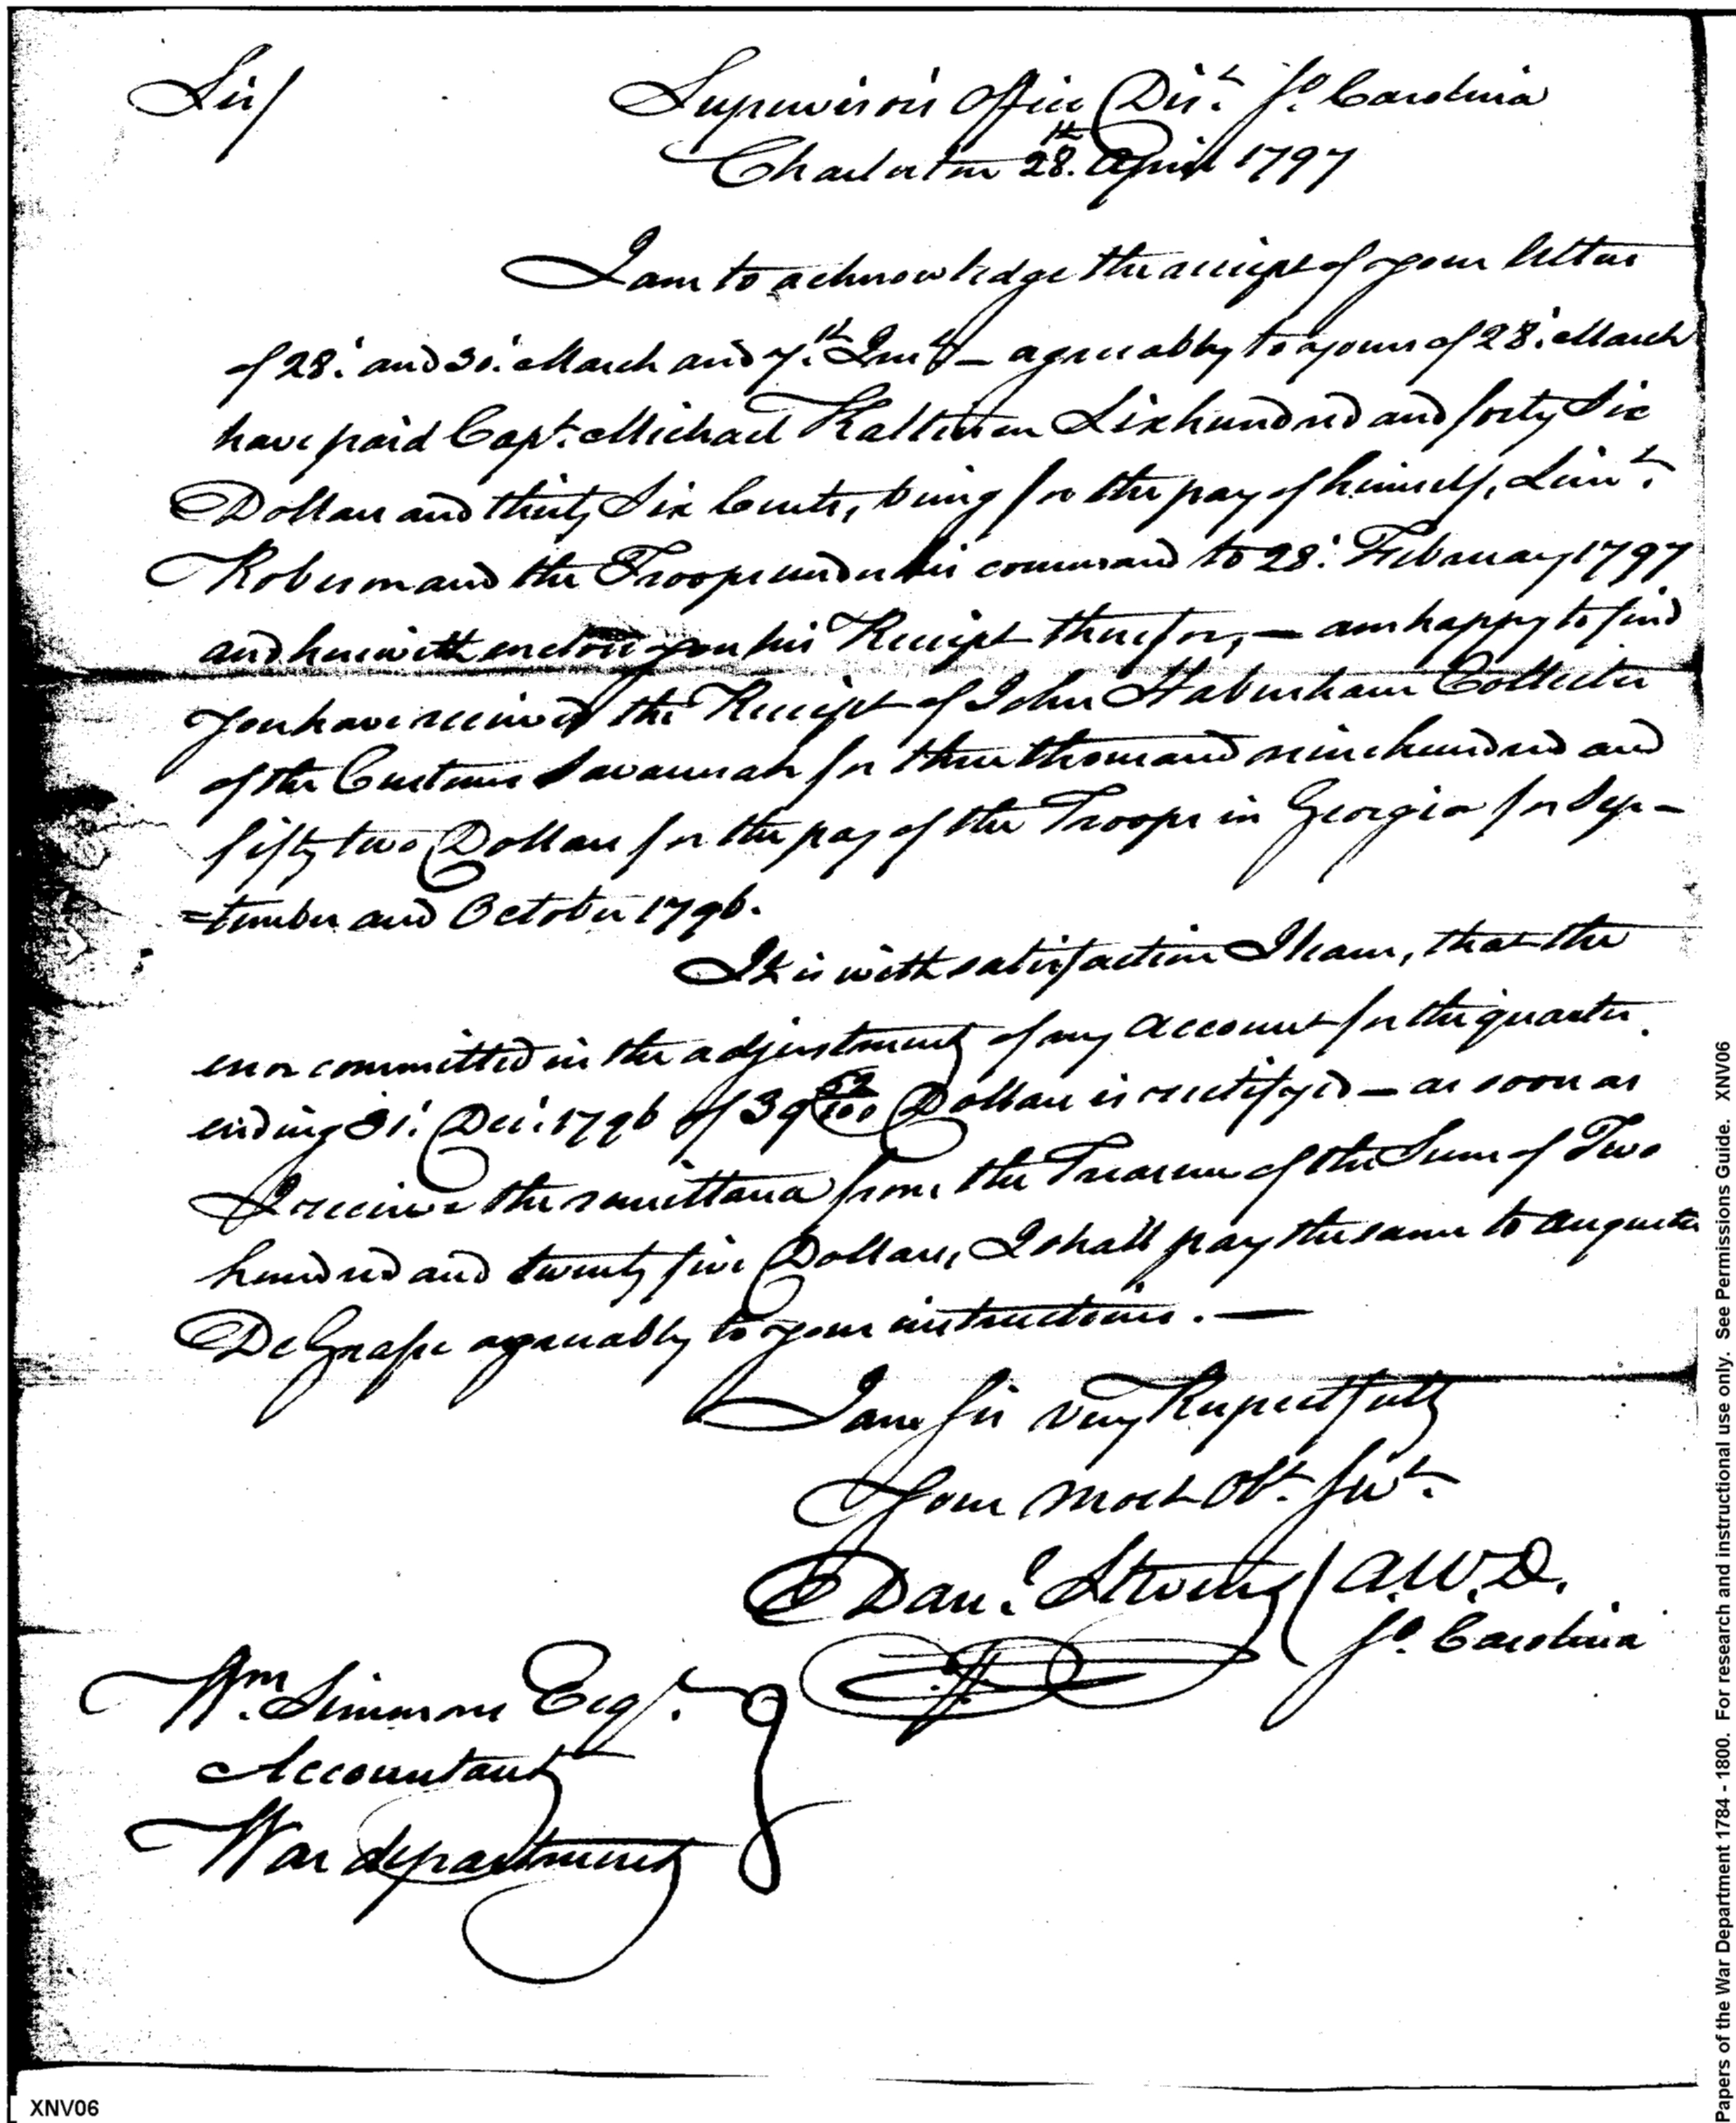 Sir/
Supervisors Office Dist. So. Carolina
Charleston 28th. April 1797
I am to acknowledge the receipt of your letters
of 28. and 30. March and 7th. Inst – agreeably to yours of 28. March
have paid Capt. Michael Kalteisen Six hundred and forty Six
Dollars and thirty Six Cents, being for the pay of himself, Lieut.
Roberson and the Troops under his command to 28. February 1797
and herewith enclose you his Receipt therefor, – am happy to find
you have received the Receipt of John Habersham Collector
of the Customs Savannah for three thousand nine hundred and
fifty two Dollars for the pay of the Troops in Georgia for Sep-
=tember and October 1796.
It is with satisfaction I learn, that the
error committed in the adjustment of my Account for the quarter
ending 31. Decr. 1796 of 39 52/100 Dollars is rectifyed – as soon as
I receive the remittance from the Treasurer of the Sum of Two
hundred and twenty five Dollars, I shall pay the same to Auguste
De Grasse agreeably to your instructions. –
I am Sir very Respectfully
Your most Obt. Servt.
Danl. Stevens / A.W.D.
So. Carolina
Wm. Simmons Esqr.
Accountant
War department
XNV06
Papers of the War Department 1784 - 1800. For research and instructional use only. See Permissions Guide. XNV06